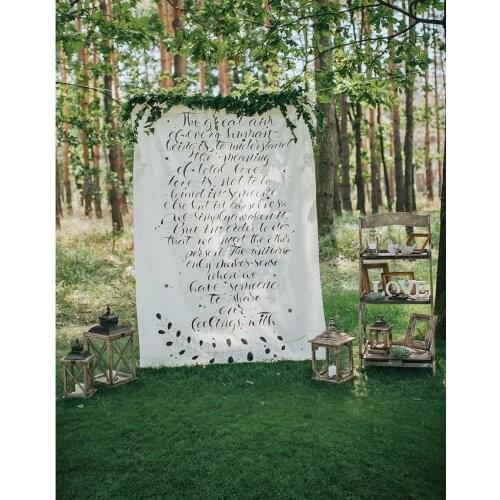 The great aim
of every human
being is to understand
the meaning
of total love
love is not to be
found in someone
else but in ourselves
we simply awaken it.
But in order to do
that we need the other
person. The universe
only makes sense
when we
have someone
to share
our
feelings with
LOVE